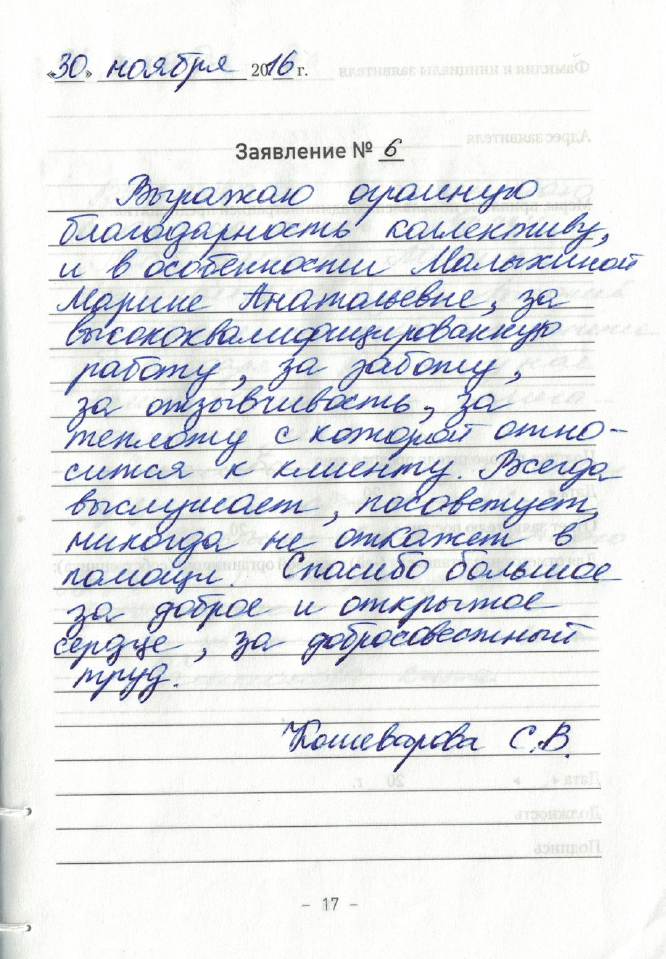 «30» ноября 2016 г.
Заявление № 6
Выражаю огромную
благодарность коллективу,
и в особенности Малыхиной
Марине Анатольевне, за
высококвалифицированную
работу, за заботу,
за отзывчивость, за
теплоту с которой отно-
сится к клиенту. Всегда
выслушает, посоветует,
никогда не откажет в
помощи. Спасибо большое
за доброе и открытое
сердце, за добросовестный
труд.
Кошеварова С.В.
- 17 -